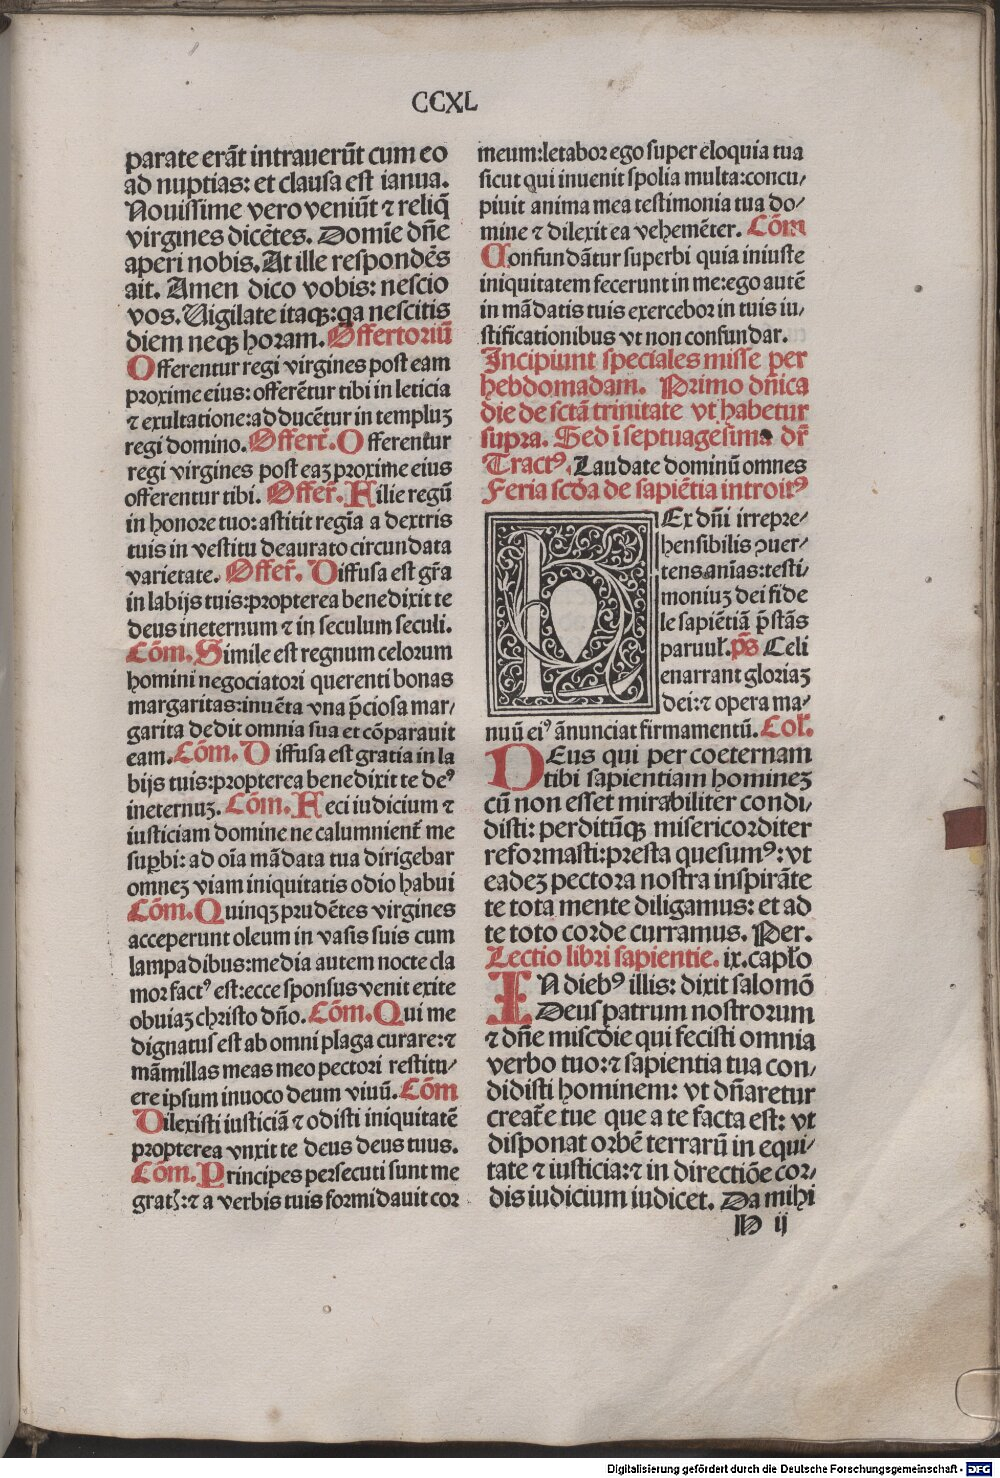 CCXL
parate erãt intrauerũt cum eo
ad nuptias: et clausa est ianua.
Nouissime vero veniũt ⁊ reliq̃
virgines dicẽtes. Domie dñe
aperi nobis. At ille respondẽs
ait. Amen dico vobis: nescio
vos. Uigilate itaqꝫ: qa nescitis
diem neqꝫ horam. Offertoriũ
Offerentur regi virgines post eam
proxime eius: offerẽtur tibi in leticia
⁊ exultatione: adducẽtur in templuꝫ
regi domino. Offerẽ. Offerentur
regi virgines post eaꝫ proxime eius
offerentur tibi. Offer̃. Filie regũ
in honore tuo: astitit regĩa a dextris
tuis in vestitu deaurato circundata
varietate. Offer̃. Diffusa est gr̃a
in labijs tuis: propterea benedixit te
deus ineternum ⁊ in seculum seculi.
Cõm. Simile est regnum celorum
homini negociatori querenti bonas
margaritas: inuẽta vna p̃ciosa mar/
garita dedit omnia sua et cõparauit
eam. Cõm. Diffusa est gratia in la
bijs tuis: propterea benedixit te deꝰ
ineternuꝫ. Cõm. Feci iudicium ⁊
iusticiam domine ne calumnient̃ me
suꝑbi: ad oĩa mãdata tua dirigebar
omneꝫ viam iniquitatis odio habui
Cõm. Quinqꝫ prudẽtes virgines
acceperunt oleum in vasis suis cum
lampadibus: media autem nocte cla
mor factꝰ est: ecce sponsus venit exite
obuiaꝫ christo dño. Cõm. Qui me
dignatus est ab omni plaga curare: ⁊
mãmillas meas meo pectori restitu/
ere ipsum inuoco deum viuũ. Cõm
Dilexisti iusticiã ⁊ odisti iniquitatẽ
propterea vnxit te deus deus tuus.
Cõm. Principes persecuti sunt me
gratꝭ: ⁊ a verbis tuis formidauit cor
meum: letabor ego super eloquia tua
sicut qui inuenit spolia multa: concu/
piuit anima mea testimonia tua do/
mine ⁊ dilexit ea vehemẽter. Cõm
Confundãtur superbi quia iniuste
iniquitatem fecerunt in me: ego autẽ
in mãdatis tuis exercebor in tuis iu/
stificationibus vt non confundar.
Incipiunt speciales misse per
hebdomadam. Primo dñica
die de sctã trinitate vt habetur
supra. Sed ĩ septuagesima dr̃
Tractꝰ. Laudate dominũ omnes
Feria scða de sapiẽtia introitꝰ
LEx dñi irrepre/
hensibilis ꝯuer/
tens anĩas: testi/
moniuꝫ dei fide
le sapiẽtiã p̃stãs
paruul̃. p̃s Celi
enarrant gloriaꝫ
dei: ⁊ opera ma/
nuũ eiꝰ ãnunciat firmamentũ. Col̃.
DEus qui per coeternam
tibi sapientiam homineꝫ
cũ non esset mirabiliter condi/
disti: perditũqꝫ misericorditer
reformasti: presta quesumꝰ: vt
eadeꝫ pectora nostra inspirãte
te tota mente diligamus: et ad
te toto corde curramus. Per.
Lectio libri sapientie. ix. capl̃o
IN diebꝰ illis: dixit salomõ
Deus patrum nostrorum
⁊ dñe miscðie qui fecisti omnia
verbo tuo: ⁊ sapientia tua con/
didisti hominem: vt dñaretur
creatẽ tue que a te facta est: vt
disponat orbẽ terrarũ in equi/
tate ⁊ iusticia: ⁊ in directiõe cor/
dis iudicium iudicet. Da mihi
H ij
Digitalisierung gefördert durch die Deutsche Forschungsgemeinschaft - DFG